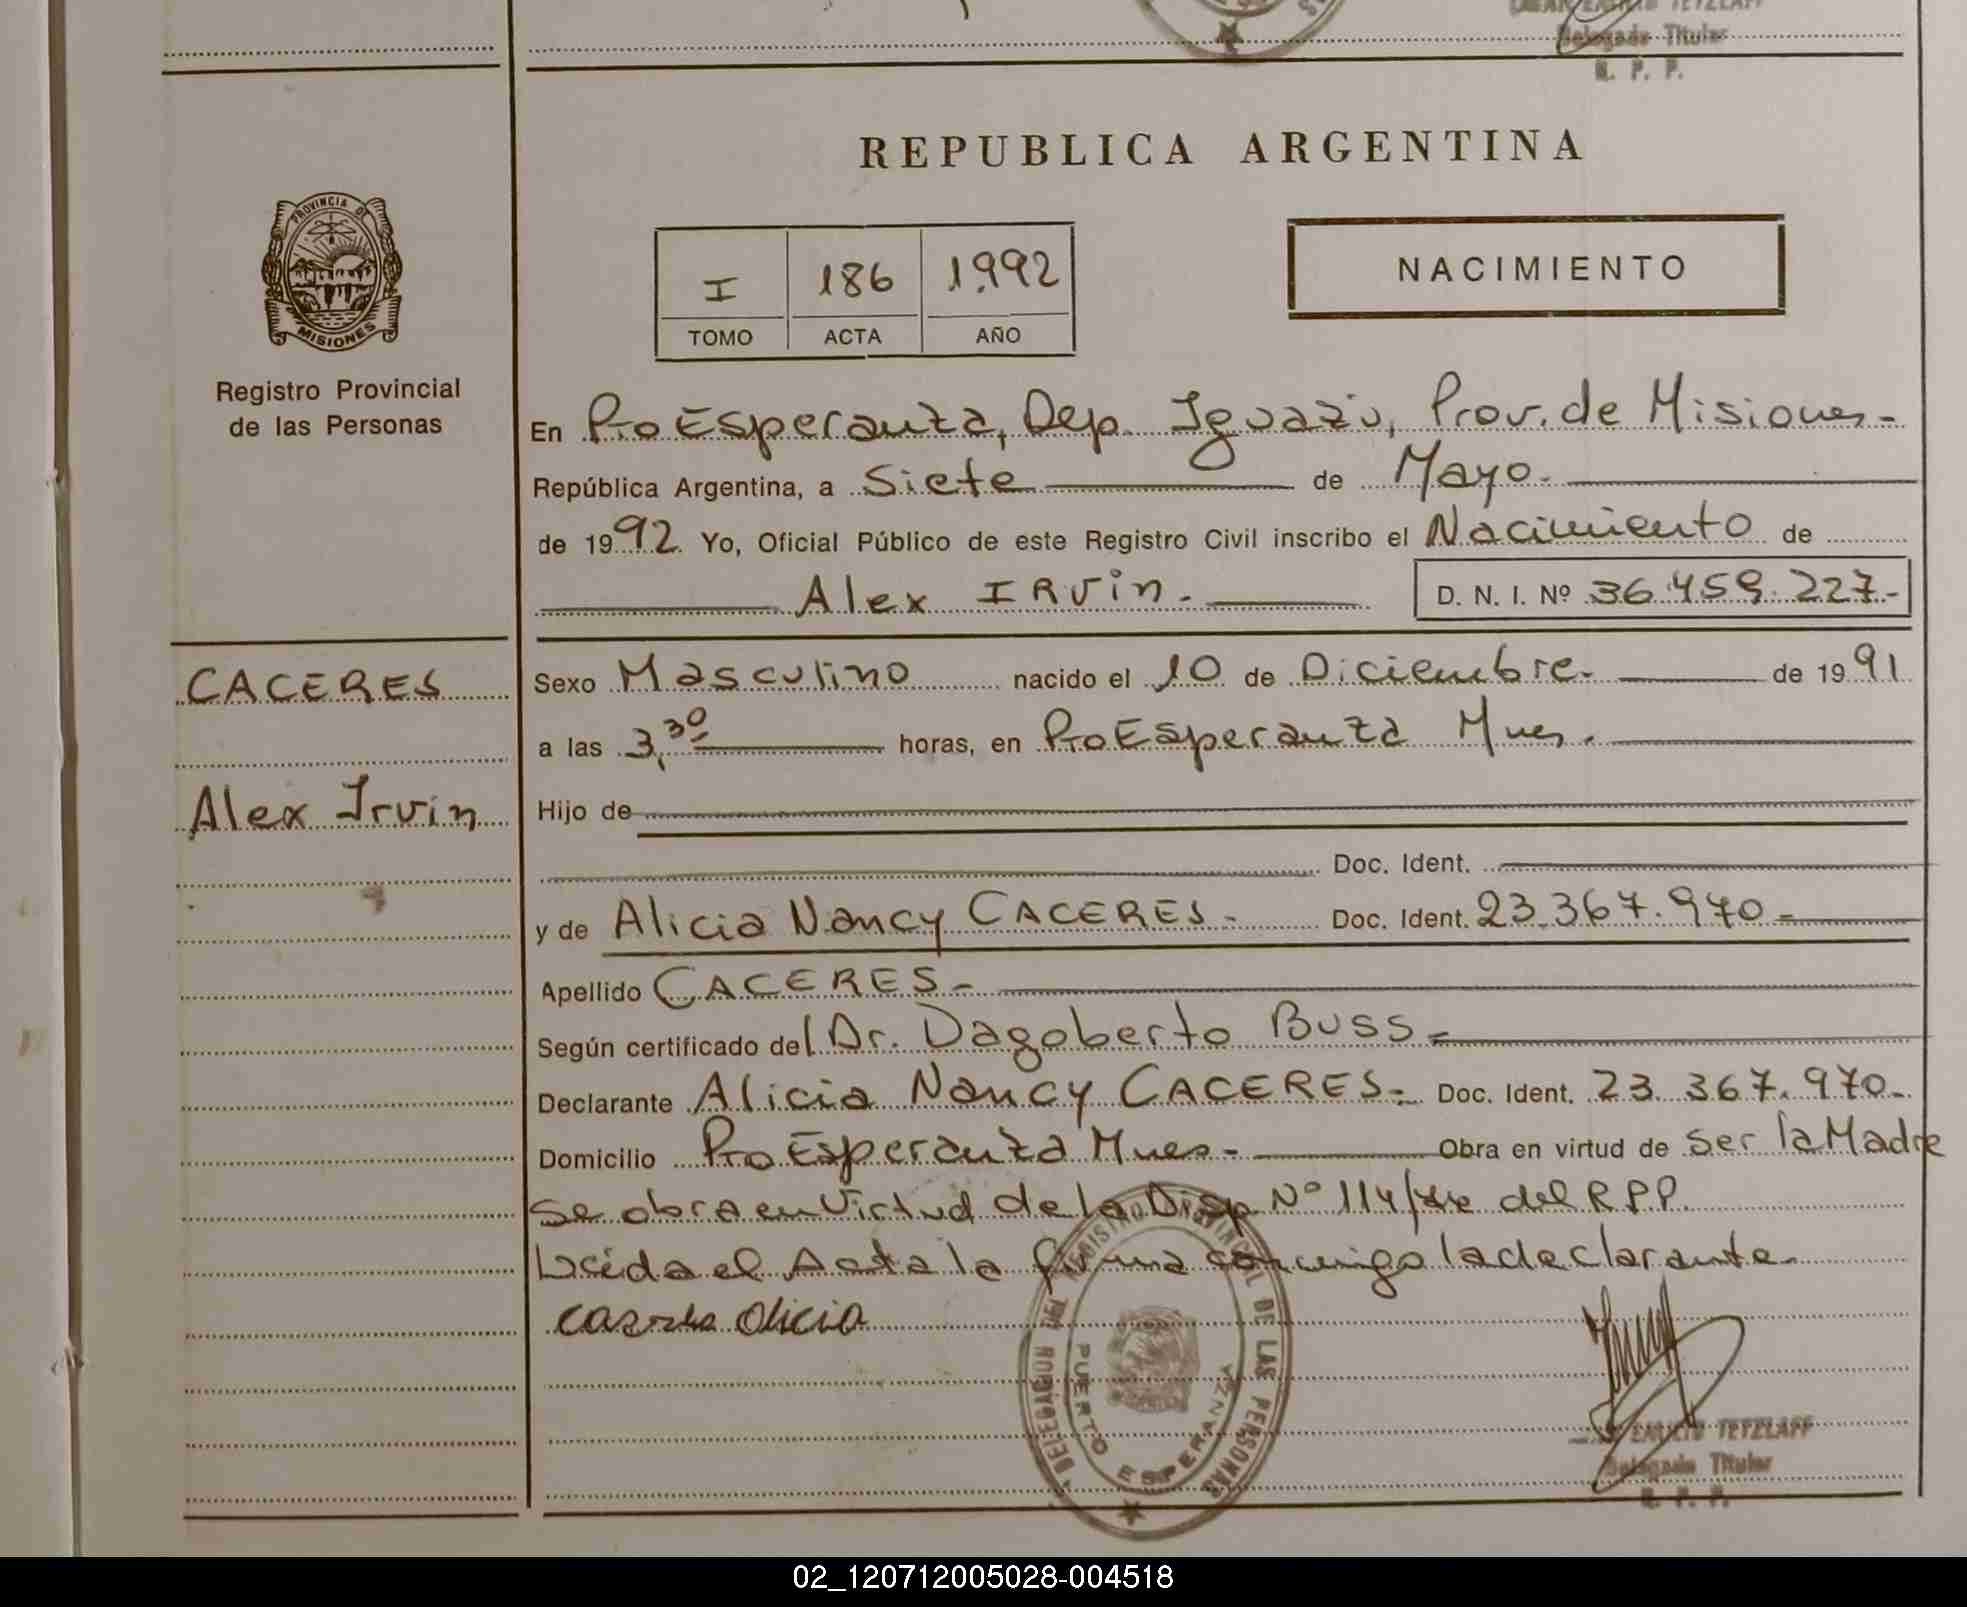 EMILIO TETZLAFF
Delegado Titular
R. P. P.
REPUBLICA ARGENTINA
PROVINCIA DE
MISIONES
Registro Provincial
de las Personas
I 186 1.992
TOMO ACTA AÑO
NACIMIENTO
En Pto Esperanza, Dep. Iguazú, Prov. de Misiones.-
República Argentina, a Siete de Mayo.-
de 1992. Yo, Oficial Público de este Registro Civil inscribo el Nacimiento de
Alex IRvin.- D. N. I. Nº 36.459.227.-
CACERES
Alex Irvin
Sexo Masculino nacido el 10 de Diciembre.- de 1991
a las 3,30 horas, en Pto Esperanza Mnes.
Hijo de
Doc. Ident.
y de Alicia Nancy CACERES.- Doc. Ident. 23.367.970.-
Apellido CACERES.-
Según certificado del Dr. Dagoberto Buss.-
Declarante Alicia Nancy CACERES.- Doc. Ident. 23.367.970.-
Domicilio Pto Esperanza Mnes.- Obra en virtud de ser la Madre
Se obra en Virtud de la Disp Nº 114/ del R.P.P.
Leída el Acta la firma conmigo la declarante.
Alicia
DELEGACION DEL REGISTRO PROVINCIAL DE LAS PERSONAS
PUERTO ESPERANZA
EMILIO TETZLAFF
Delegado Titular
R. P. P.
02_120712005028-004518